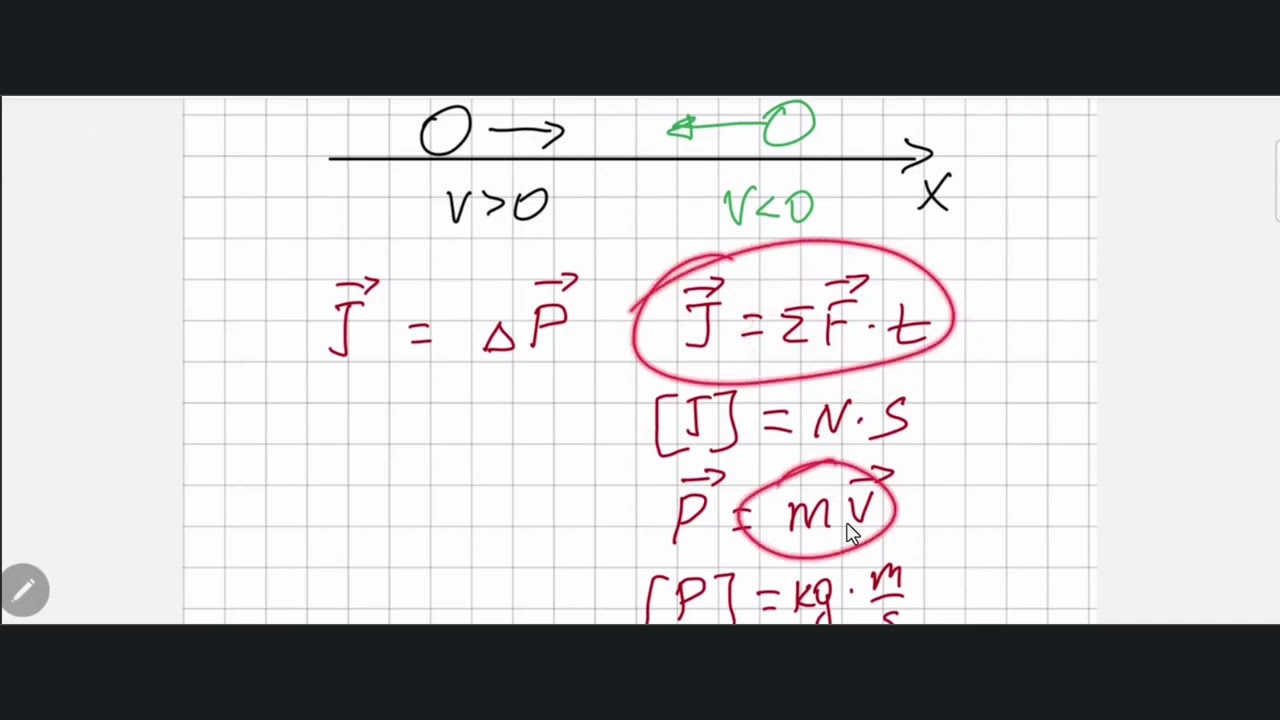 v>0 v<0 x
J⃗ = ΔP⃗ J⃗ = ΣF⃗ · t
[J] = N·s
P⃗ = mv⃗
[P] = kg · m/s